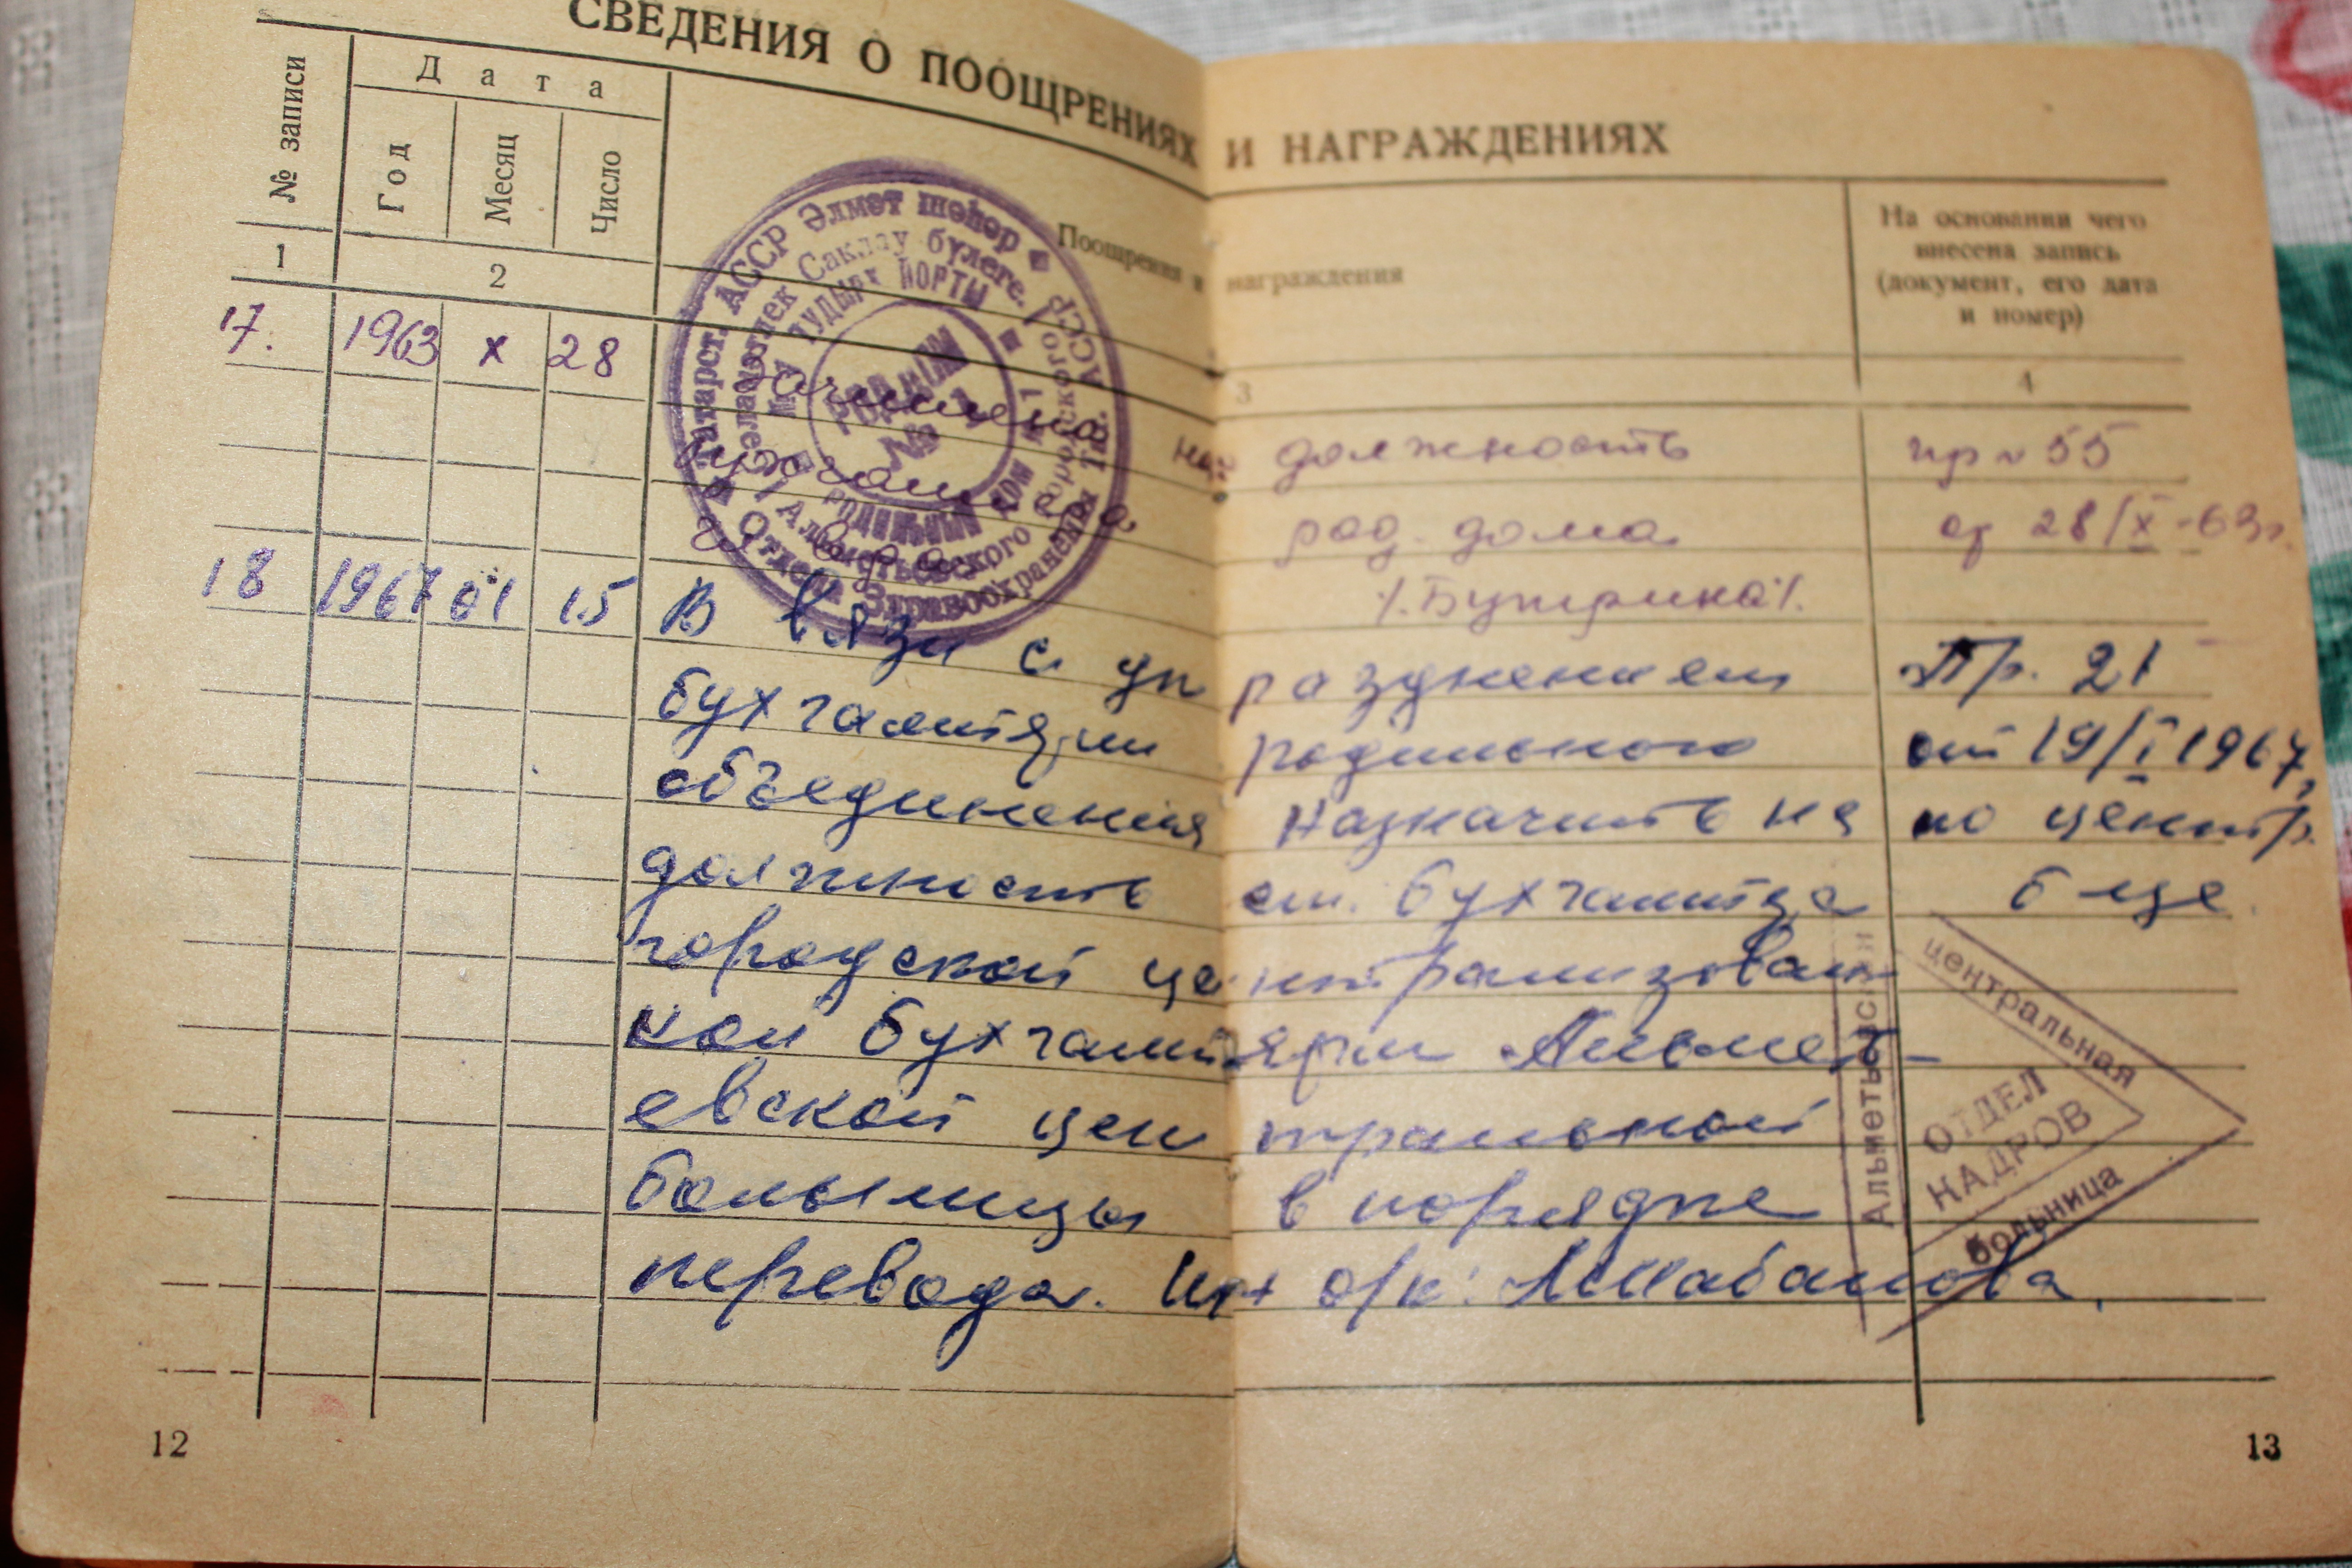 СВЕДЕНИЯ О ПООЩРЕНИЯХ И НАГРАЖДЕНИЯХ
№ записи
Дата
Год
Месяц
Число
Поощрения и награждения
На основании чего
внесена запись
(документ, его дата
и номер)
1
2
3
4
17. 1963 X 28 Зачислена на должность пр № 55
бухгалтера род. дома от 28/X-63г.
/.Бутрина/.
18 1967 01 15 В вязи с уп разднением Пр. 21
бухгалтярии родильного от 19/I 1967,
объединения Назначить на по центр.
должность ст. бухгалтера б-це
городской централизован
ной бухгалтярии Альметь-
евской центральной
больницы в порядке
перевода. о/к:
Татарст. АССР Әлмәт шәһәр
Сәламәтлек Саклау бүлеге.
Отдела Здравоохранения Тат. АССР
Альметьевского городского
Родильный дом №1
РОД. ДОМ
№
Альметьевская
центральная
больница
ОТДЕЛ
КАДРОВ
12
13